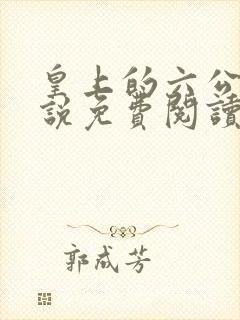 皇上的六公
說免費閱讀
郭成芳